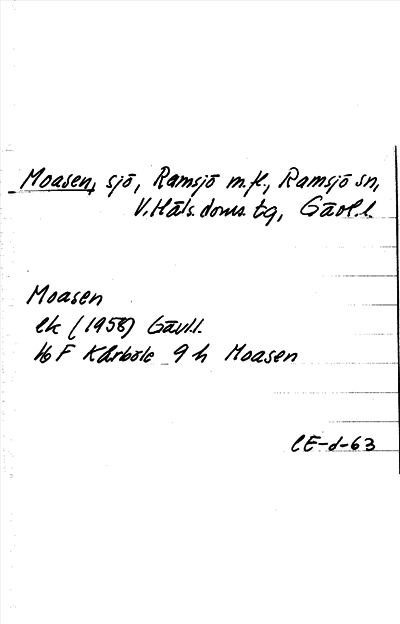 Moasen, sjö, Ramsjö m.fl., Ramsjö sn,
V.Häls.doms.tg, Gävl.l.
Moasen
ek (1958) Gävl.l.
16 F Kårböle 9 h Moasen
CE-d-63